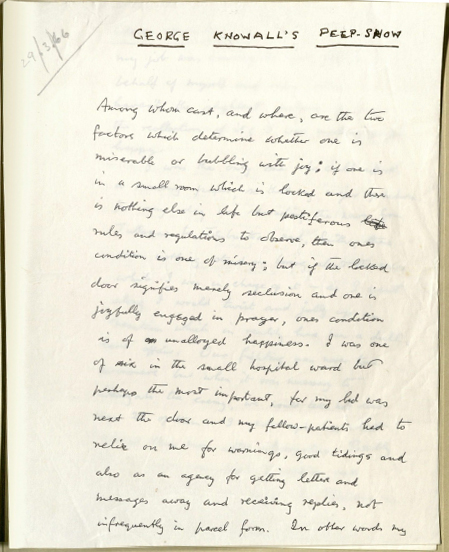 29/3/66
GEORGE KNOWALL'S PEEP-SHOW
Among whom cast, and where, are the two
factors which determine whether one is
miserable or bubbling with joy; if one is
in a small room which is locked and there
is nothing else in life but pestiferous life
rules and regulations to observe, then ones
condition is one of misery; but if the locked
door signifies merely seclusion and one is
joyfully engaged in prayer, ones condition
is of unalloyed happiness. I was one
of six in the small hospital ward but
perhaps the most important, for my bed was
next the door and my fellow-patients had to
relie on me for warnings, good tidings and
also as an agency for getting letter and
messages away and receiving replies, not
infrequently in parcel form. In other words my